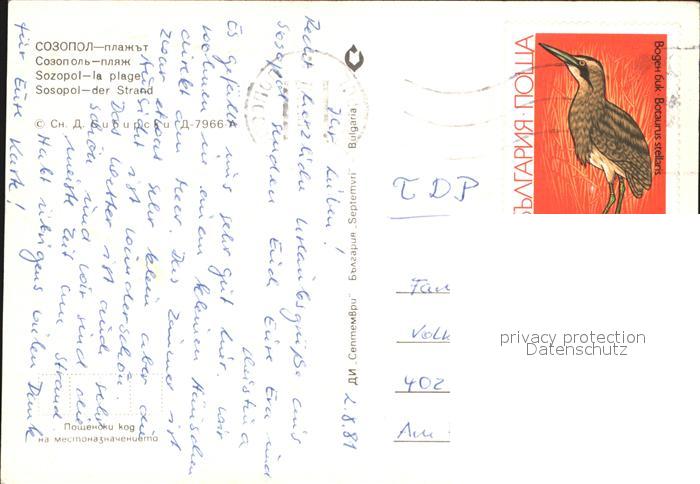 СОЗОПОЛ—плажът
Созополь—пляж
Sozopol—la plage
Sosopol—der Strand
© Сн. Д.
СД-7966-А
Ihr Lieben!
Recht herzliche Urlaubsgrüße aus
Sosopol senden Euch Eure Eva und
Christina
Es gefällt uns sehr gut hier. Wir
wohnen in einem kleinen Häuschen
direkt am Meer. Das Zimmer ist
zwar etwas sehr klein aber die
Aussicht ist wunderschön.
Das Wetter ist auch sehr
schön und wir sind die
meiste Zeit am Strand.
Habt übrigens vielen Dank
für Eure Karte!
2.8.81
ДИ „Септември“ България „Septemvri“ Bulgaria
Пощенски код
на местоназначението
БЪЛГАРИЯ · ПОЩА
Воден бик Botaurus stellaris
Fam
Volk
402
Am
privacy protection
Datenschutz